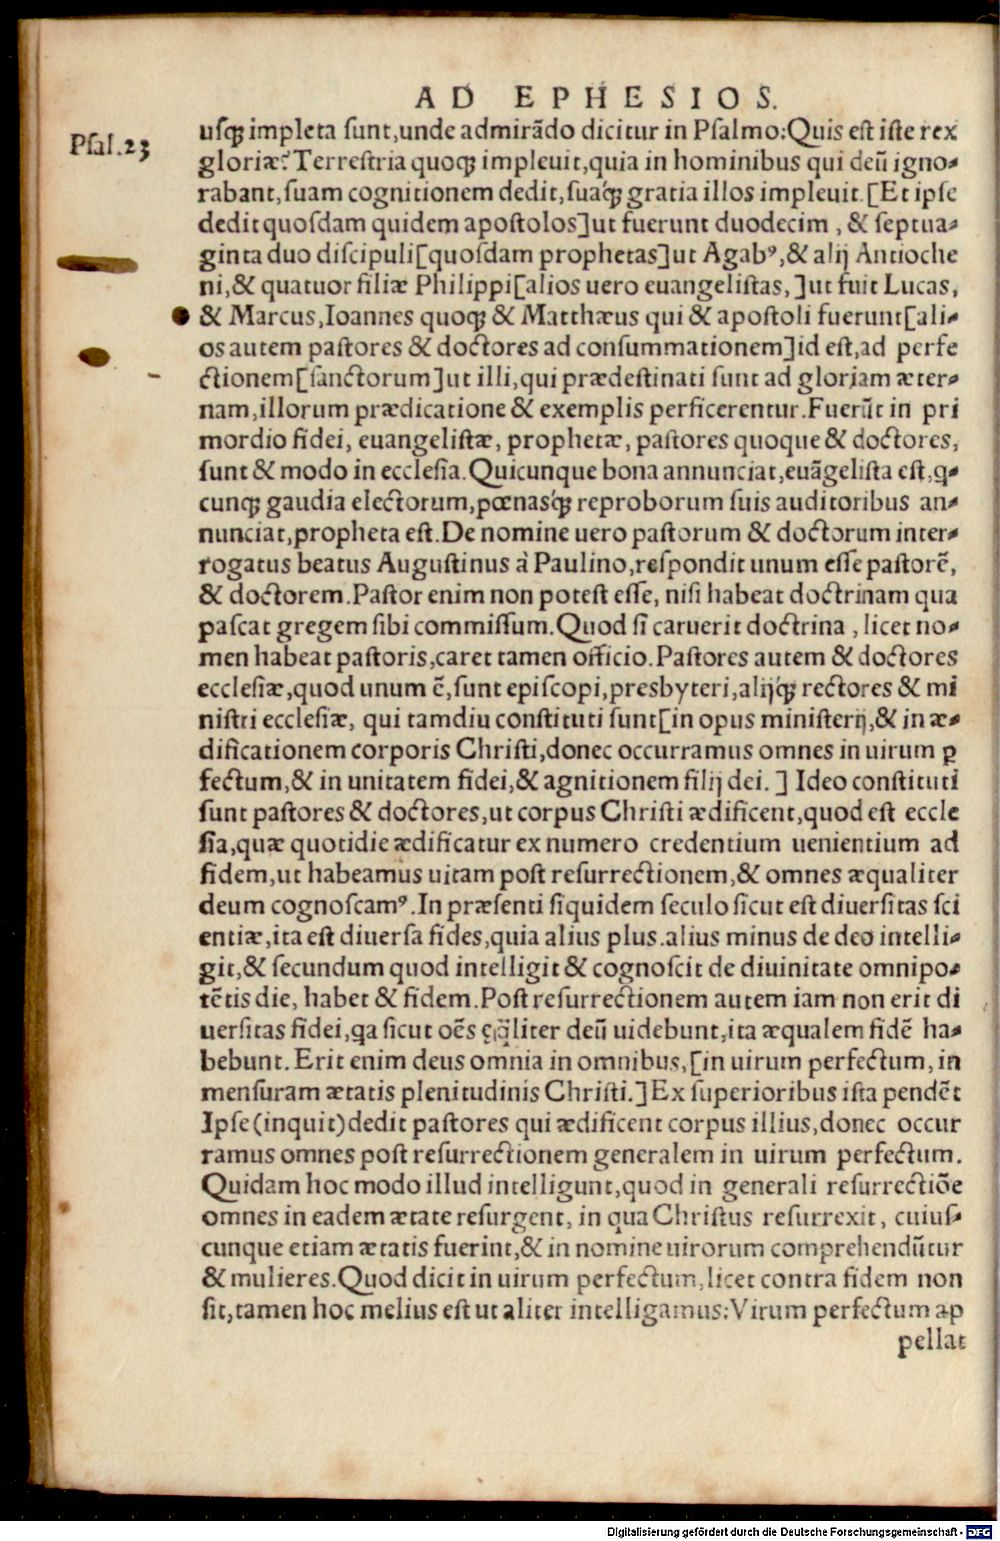 AD EPHESIOS.
Psal.23
usqꝫ impleta sunt,unde admirãdo dicitur in Psalmo:Quis est iste rex
gloriæ? Terrestria quoqꝫ impleuit,quia in hominibus qui deũ igno-
rabant,suam cognitionem dedit,suaq́ꝫ gratia illos impleuit.[Et ipse
dedit quosdam quidem apostolos]ut fuerunt duodecim , & septua-
ginta duo discipuli[quosdam prophetas]ut Agabꝰ,& alij Antioche
ni,& quatuor filiæ Philippi[alios uero euangelistas,]ut fuit Lucas,
& Marcus,Ioannes quoqꝫ & Matthæus qui & apostoli fuerunt[ali-
os autem pastores & doctores ad consummationem]id est,ad perfe
ctionem[sanctorum]ut illi,qui prædestinati sunt ad gloriam æter-
nam,illorum prædicatione & exemplis perficerentur.Fuerũt in pri
mordio fidei, euangelistæ, prophetæ, pastores quoque & doctores,
sunt & modo in ecclesia.Quicunque bona annunciat,euãgelista est,q-
cunqꝫ gaudia electorum,pœnasq́ꝫ reproborum suis auditoribus an-
nunciat,propheta est.De nomine uero pastorum & doctorum inter-
rogatus beatus Augustinus à Paulino,respondit unum esse pastorẽ,
& doctorem.Pastor enim non potest esse, nisi habeat doctrinam qua
pascat gregem sibi commissum.Quod si caruerit doctrina , licet no-
men habeat pastoris,caret tamen officio.Pastores autem & doctores
ecclesiæ,quod unum ẽ,sunt episcopi,presbyteri,alijq́ꝫ rectores & mi
nistri ecclesiæ, qui tamdiu constituti sunt[in opus ministerij,& in æ-
dificationem corporis Christi,donec occurramus omnes in uirum ꝑ
fectum,& in unitatem fidei,& agnitionem filij dei. ] Ideo constituti
sunt pastores & doctores,ut corpus Christi ædificent,quod est eccle
sia,quæ quotidie ædificatur ex numero credentium uenientium ad
fidem,ut habeamus uitam post resurrectionem,& omnes æqualiter
deum cognoscamꝰ.In præsenti siquidem seculo sicut est diuersitas sci
entiæ,ita est diuersa fides,quia alius plus.alius minus de deo intelli-
git,& secundum quod intelligit & cognoscit de diuinitate omnipo-
tẽtis die, habet & fidem.Post resurrectionem autem iam non erit di
uersitas fidei,qa sicut oẽs ęq̃liter deũ uidebunt,ita æqualem fidẽ ha-
bebunt.Erit enim deus omnia in omnibus,[in uirum perfectum, in
mensuram ætatis plenitudinis Christi.]Ex superioribus ista pendẽt
Ipse(inquit)dedit pastores qui ædificent corpus illius,donec occur
ramus omnes post resurrectionem generalem in uirum perfectum.
Quidam hoc modo illud intelligunt,quod in generali resurrectiõe
omnes in eadem ætate resurgent, in qua Christus resurrexit, cuius-
cunque etiam ætatis fuerint,& in nomine uirorum comprehendũtur
& mulieres.Quod dicit in uirum perfectum,licet contra fidem non
sit,tamen hoc melius est ut aliter intelligamus:Virum perfectum ap
pellat
Digitalisierung gefördert durch die Deutsche Forschungsgemeinschaft - DFG